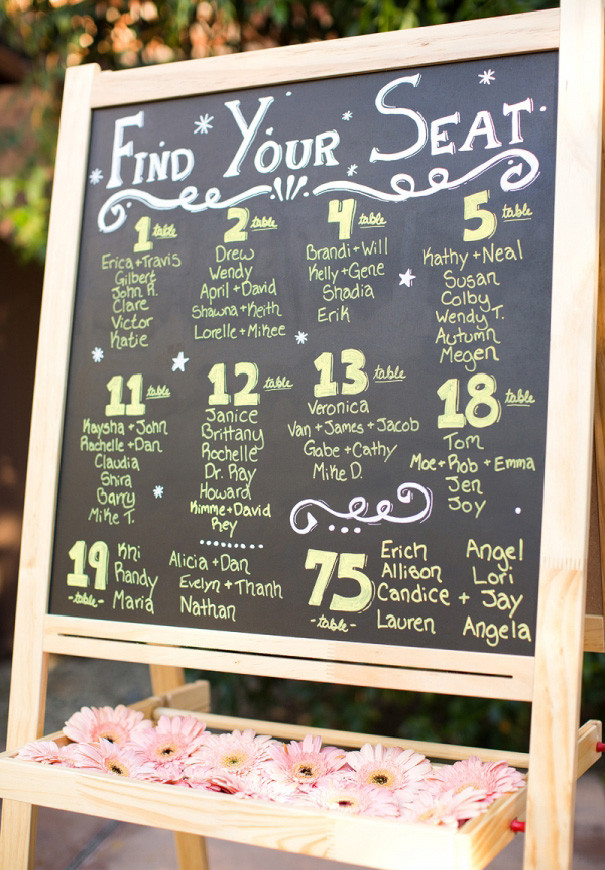 FIND YOUR SEAT
1 table
Erica + Travis
Gilbert
John R.
Clare
Victor
Katie
2 table
Drew
Wendy
April + David
Shawna + Keith
Lorelle + Mikee
4 table
Brandi + Will
Kelly + Gene
Shadia
Erik
5 table
Kathy + Neal
Susan
Colby
Wendy T.
Autumn
Megen
11 table
Kaysha + John
Rachelle + Dan
Claudia
Shira
Barry
Mike T.
12 table
Janice
Brittany
Rochelle
Dr. Ray
Howard
Kimme + David
Rey
13 table
Veronica
Van + James + Jacob
Gabe + Cathy
Mike D.
18 table
Tom
Moe + Rob + Emma
Jen
Joy
19 -table-
Khi
Randy
Maria
Alicia + Dan
Evelyn + Thanh
Nathan
75 -table-
Erich Angel
Allison Lori
Candice + Jay
Lauren Angela